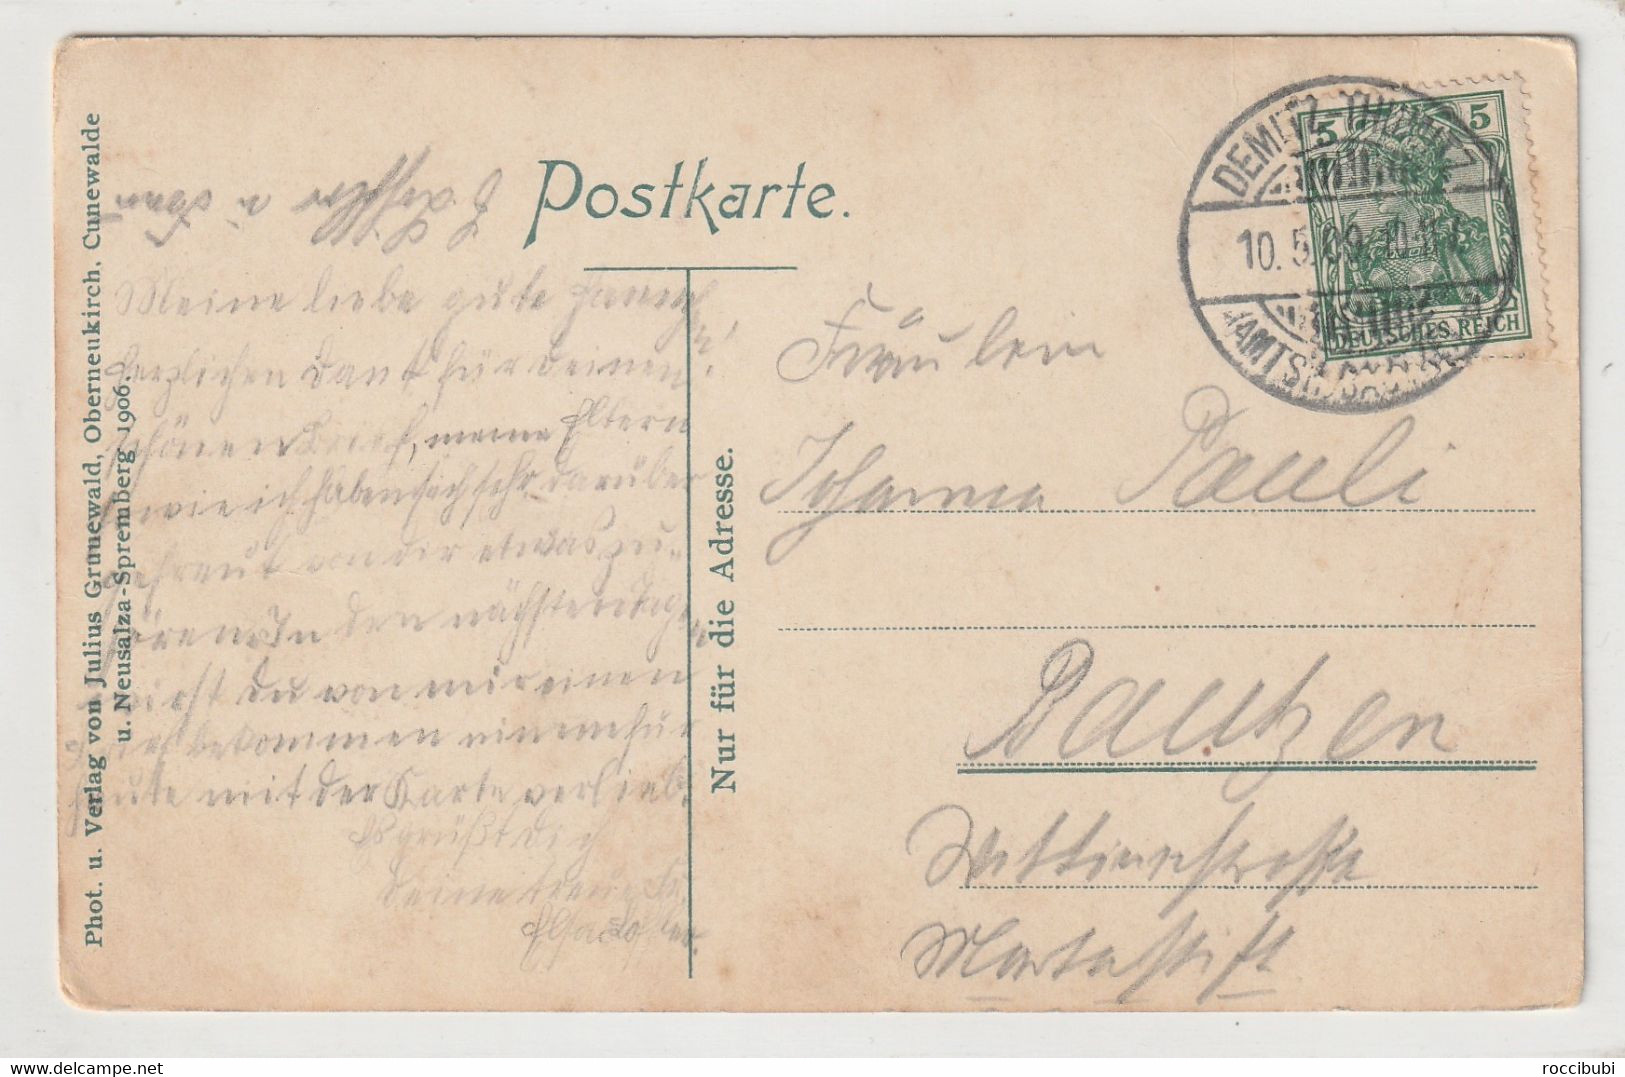 Postkarte.
Phot. u. Verlag von Julius Grunewald, Oberneukirch, Cunewalde
u. Neusalza-Spremberg 1906.
Nur für die Adresse.
Meine liebe gute
herzlichen Dank für Deinen
schönen Brief, meine Eltern
wie ich haben sich sehr darüber
gefreut von dir etwas zu
hören. In den nächsten Tagen
wirst du von mir einen
bekommen nimm für
heute mit der Karte vorlieb.
Es grüßt Dich
Deine treue
Elsa
Fräulein
Johanna Pauli
Bautzen
Marthastift
DEMITZ-THUMITZ
10. 5. 09.
5 5
DEUTSCHES REICH
roccibubi